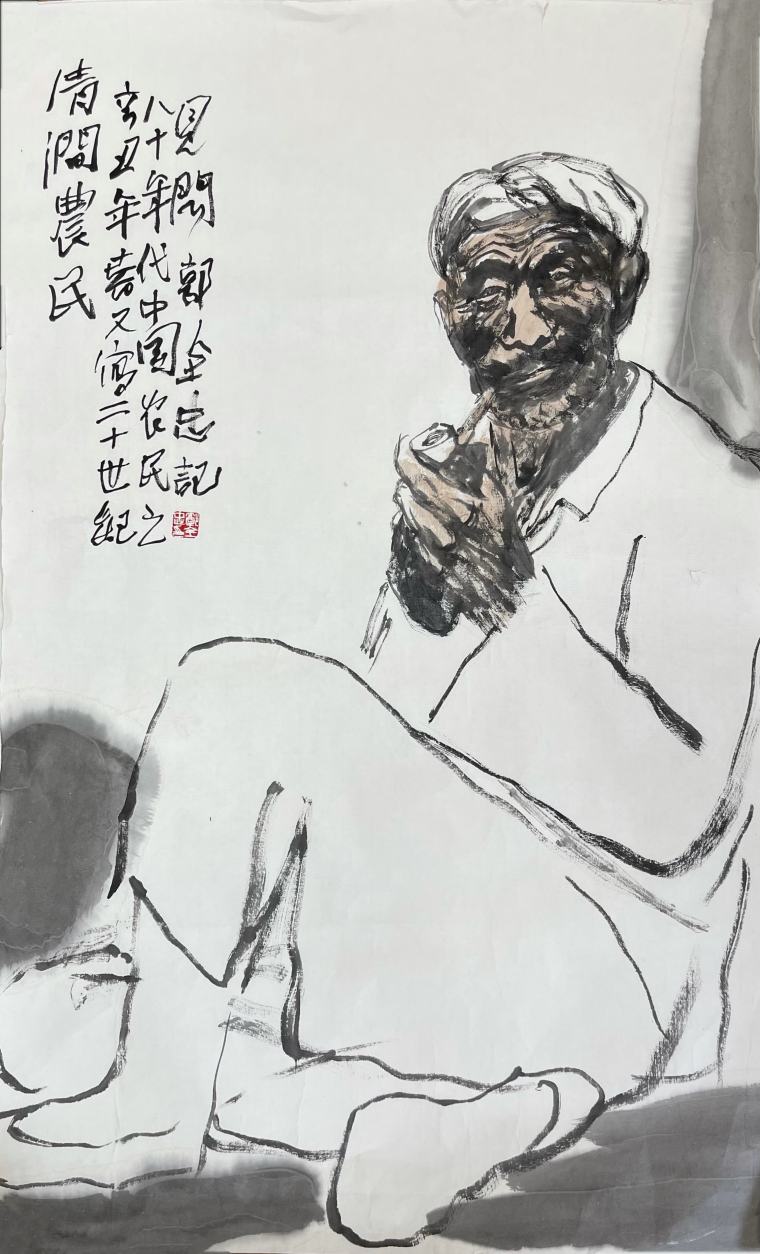 清澗農民
辛丑年春又寫二十世紀
八十年代中国农民之
見聞 郭全忠記